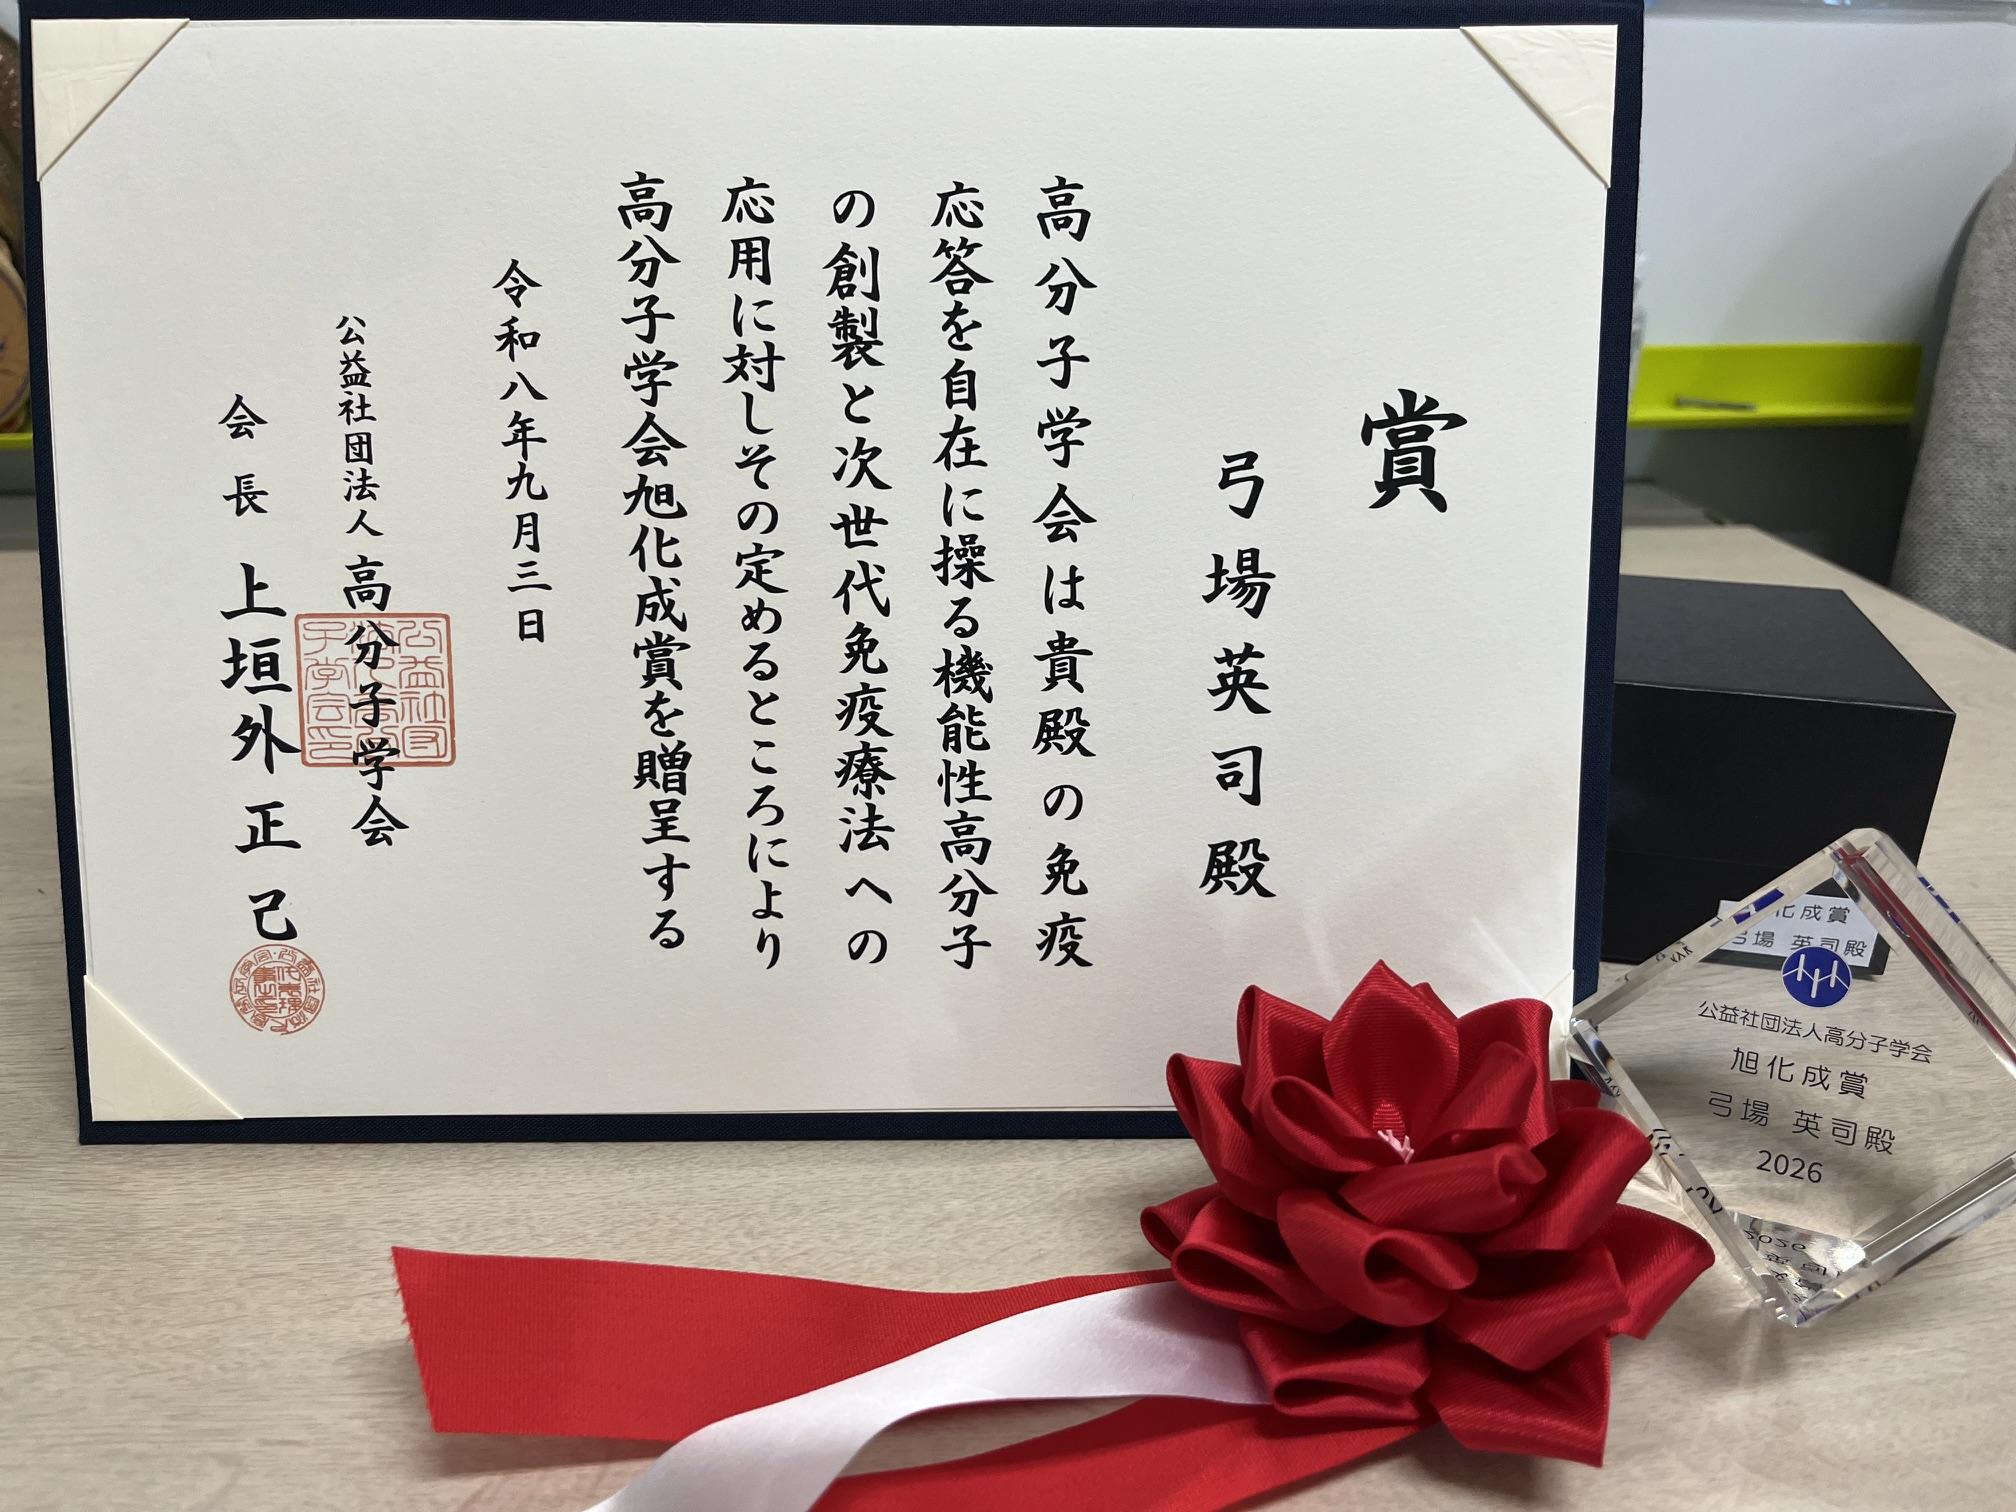 賞
弓場英司殿
高分子学会は貴殿の免疫
応答を自在に操る機能性高分子
の創製と次世代免疫療法への
応用に対しその定めるところにより
高分子学会旭化成賞を贈呈する
令和八年九月三日
公益社団法人 高分子学会
会長 上垣外正己
化成賞
弓場 英司殿
公益社団法人高分子学会
旭化成賞
弓場 英司殿
2026